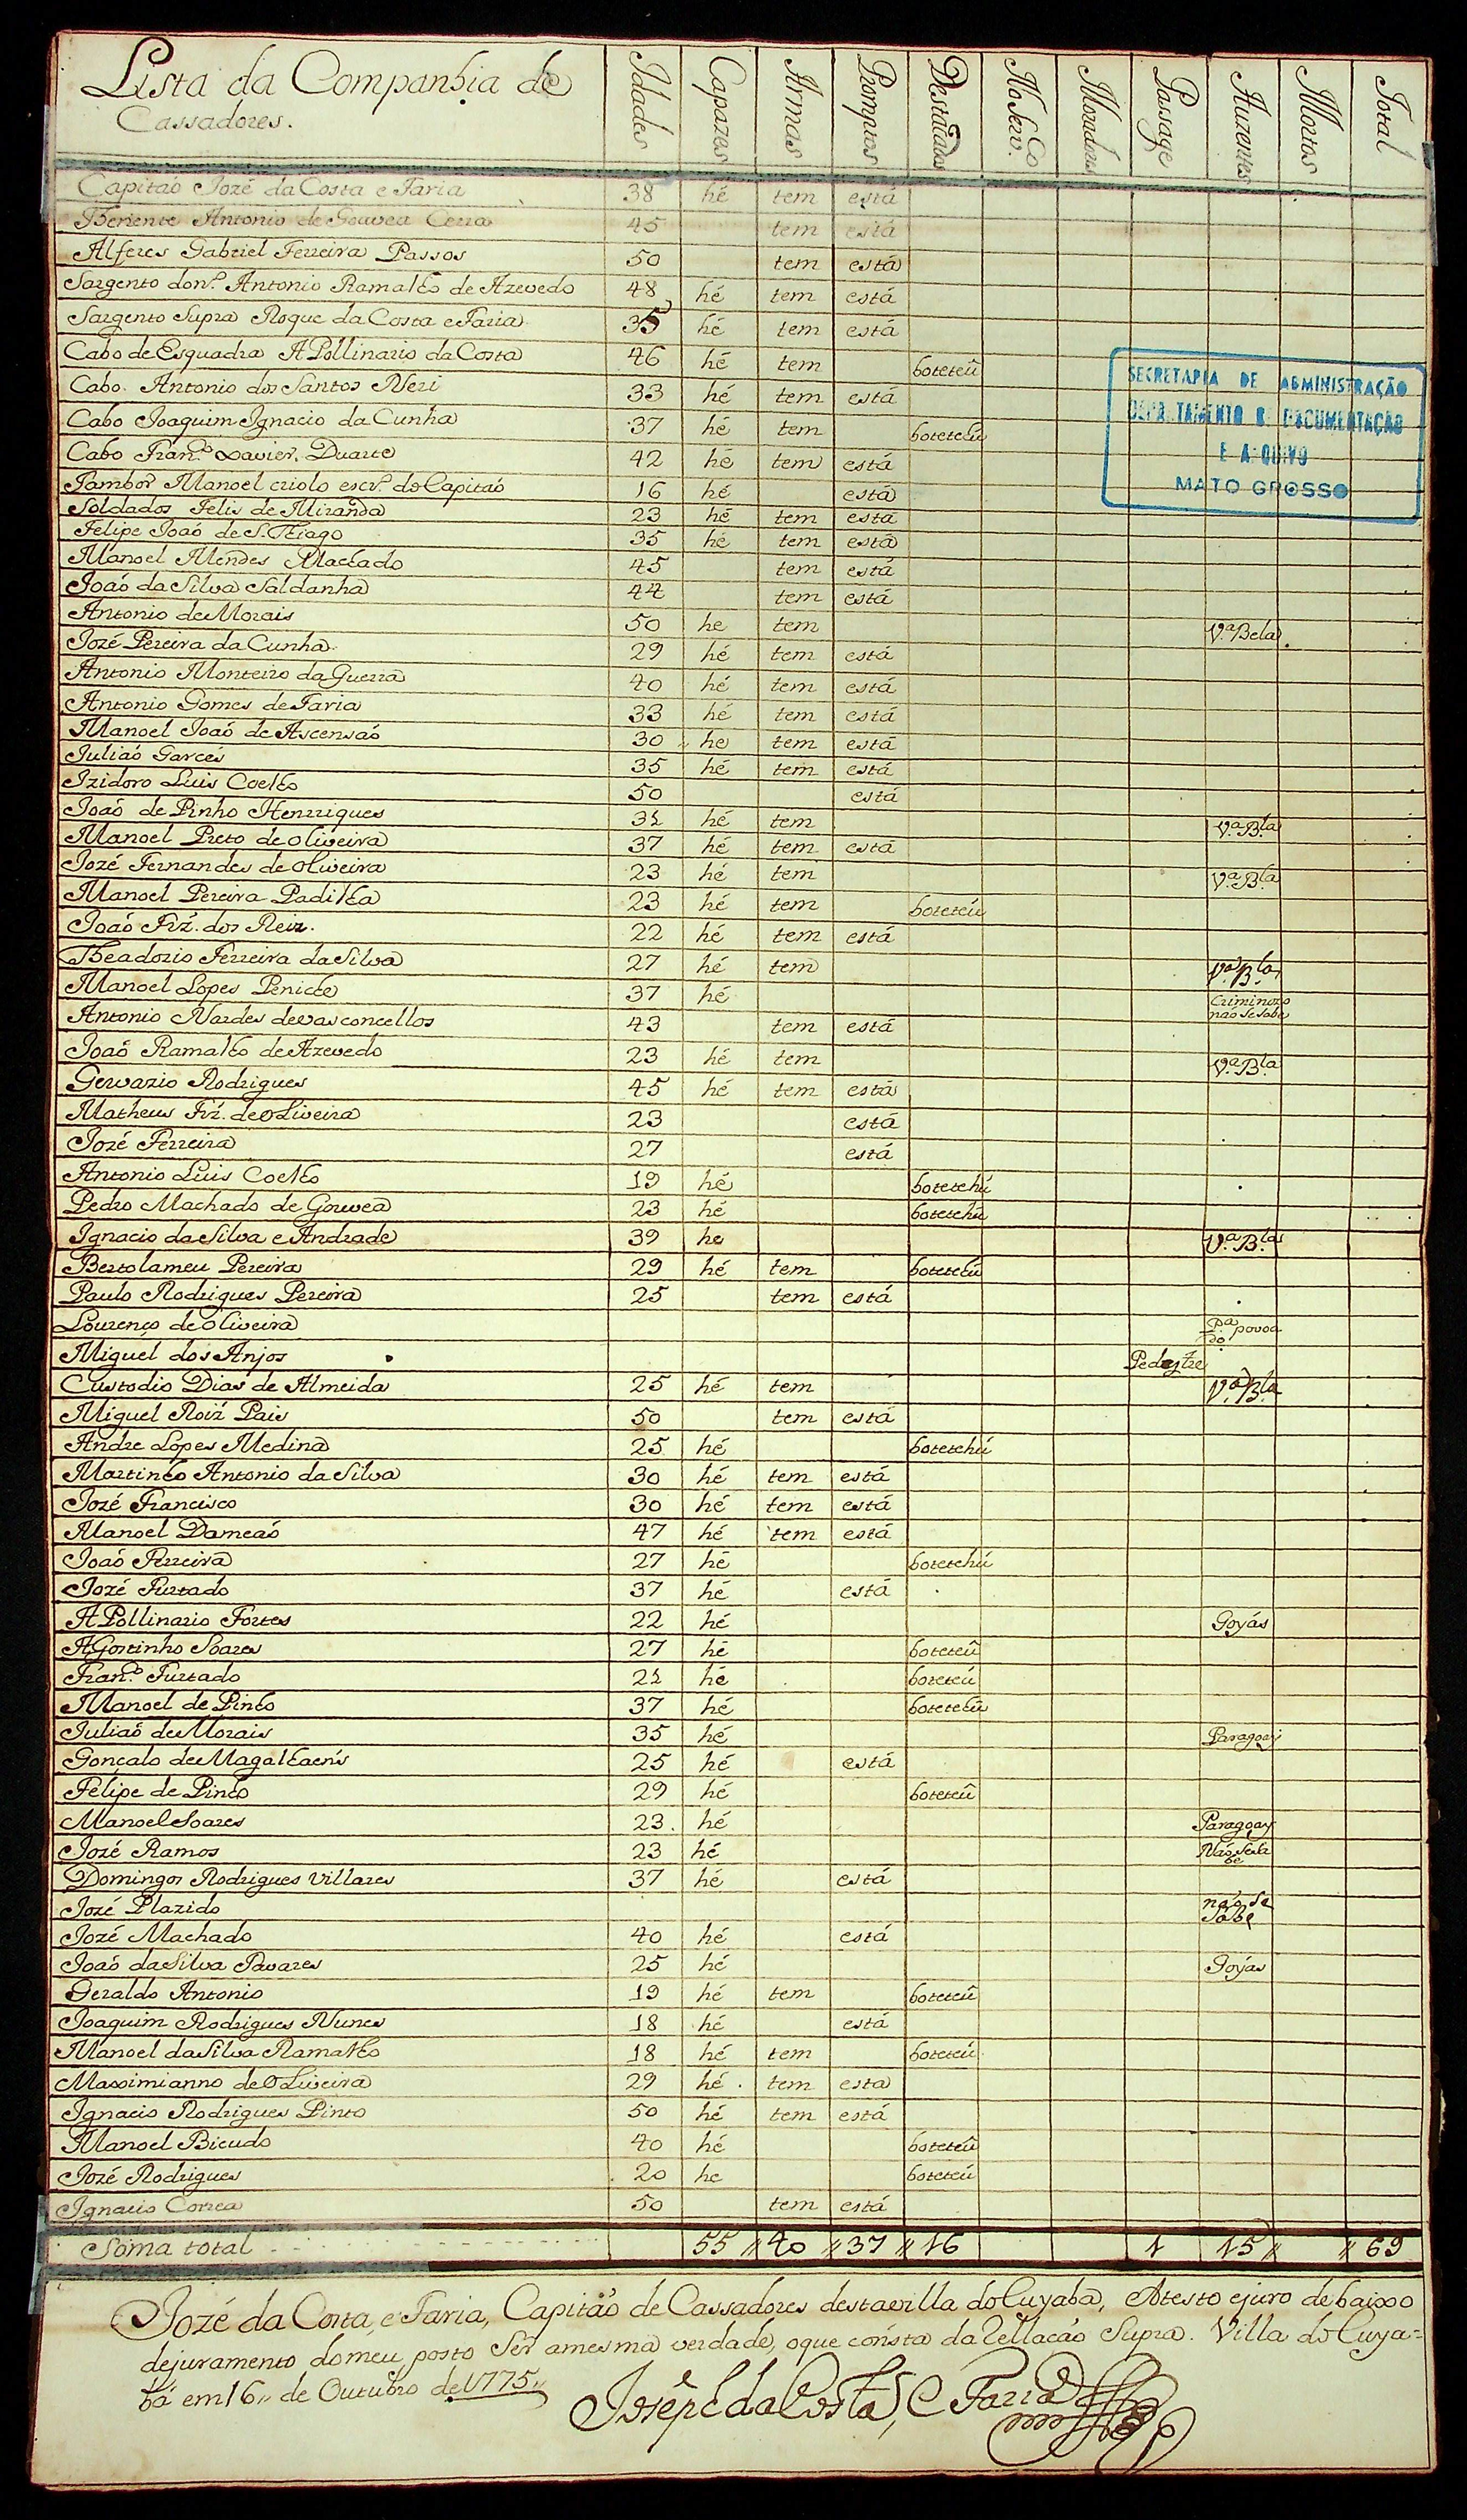 Lista da Companhia de
Cassadores.
Idades Capazes Armas Promptos Destacados No Serv.co Moradores Pasage Auzentes Mortos Total
Capitaó Jozé da Costa e Faria 38 hé tem está
Thenente Antonio de Gouvea Cerra 45 tem está
Alferes Gabriel Ferreira Passos 50 tem está
Sargento do n.º Antonio Ramalho de Azevedo 48 hé tem está
Sargento Supra Roque da Costa e Faria 35 hé tem está
Cabo de Esquadra APollinario da Costa 46 hé tem boteteú
Cabo Antonio dos Santos Neri 33 hé tem está
Cabo Joaquim Ignacio da Cunha 37 hé tem boteteú
Cabo Fran.co Xavier Duarte 42 hé tem está
Tambor Manoel criolo escr.º do Capitaó 16 hé está
Soldados Felis de Miranda 23 hé tem está
Felipe Joaó de S. Thiago 35 hé tem está
Manoel Mendes Machado 45 tem está
Joaó da Silva Saldanha 44 tem está
Antonio de Morais 50 he tem V.ª Bela
Jozé Pereira da Cunha 29 hé tem está
Antonio Monteiro da Guerra 40 hé tem está
Antonio Gomes de Faria 33 hé tem está
Manoel Joaó de Ascensaó 30 he tem está
Juliaó Garces 35 hé tem está
Izidoro Luis Coelho 50 está
Joaó de Pinho Henrriques 31 hé tem V.ª B.la
Manoel Preto de oliveira 37 hé tem está
Jozé Fernandes de oliveira 23 hé tem V.ª B.la
Manoel Pereira Padilha 23 hé tem boteteú
Joaó Frz. dos Reis. 22 hé tem está
Theadorio Ferreira da Silva 27 hé tem V.ª B.la
Manoel Lopes Peniche 37 hé Criminozo naó se sabe
Antonio Nardes de vasconcellos 43 tem está
Joaó Ramalho de Azevedo 23 hé tem V.ª B.la
Gervazio Rodrigues 45 hé tem está
Matheus Frz. de oLiveira 23 está
Jozé Ferreira 27 está
Antonio Luis Coelho 19 hé botetehú
Pedro Machado de Gouvea 23 hé botetehú
Ignacio da Silva e Andrade 39 he V.ª B.la
Bertolameu Pereira 29 hé tem boteteú
Paulo Rodrigues Pereira 25 tem está
Lourenço de oliveira P.ª povoa do
Miguel dos Anjos Pedestre
Custodio Dias de Almeida 25 hé tem V.ª B.la
Miguel Roiz Pais 50 tem está
Andre Lopes Medina 25 hé botetehú
Martinho Antonio da Silva 30 hé tem está
Jozé Francisco 30 hé tem está
Manoel Dameaó 47 hé tem está
Joaó Ferreira 27 hé botetehú
Jozé Furtado 37 hé está
APollinario Fortes 22 hé Goyás
AGostinho Soares 27 hé boteteú
Fran.co Furtado 21 hé boteteú
Manoel de Pinho 37 hé boteteú
Juliaó de Morais 35 hé Paragoay
Gonçalo de Magalhaens 25 hé está
Felipe de Pinho 29 hé boteteú
Manoel Soares 23. hé Paragoay
Jozé Ramos 23 hé Náo se sa be
Domingos Rodrigues Villares 37 hé está
Jozé Plazido náo se sabe
Jozé Machado 40 hé está
Joaó da Silva Tavares 25 hé Goyas
Geraldo Antonio 19 hé tem boteteú
Joaquim Rodrigues Nunes 18 hé está
Manoel da Silva Ramalho 18 hé tem boteteú
Massimianno de oLiveira 29 hé tem esta
Ignacio Rodrigues Pinto 50 hé tem está
Manoel Bicudo 40 hé boteteú
Jozé Rodrigues 20 he boteteú
Ignacio Correa 50 tem está
Soma total 55 40 37 16 1 15 69
Jozé da Costa, e Faria, Capitaó de Cassadores desta villa do Cuyaba, Atesto e juro debaixo
de juramento do meu posto Ser a mesma verdade, o que consta da Rellacaó Supra. Villa do Cuya=
bá em 16 de Outubro de 1775
Joseph da Costa, e Faria
SECRETARIA DE ADMINISTRAÇÃO
DEPARTAMENTO DE DOCUMENTAÇÃO
E ARQUIVO
MATO GROSSO